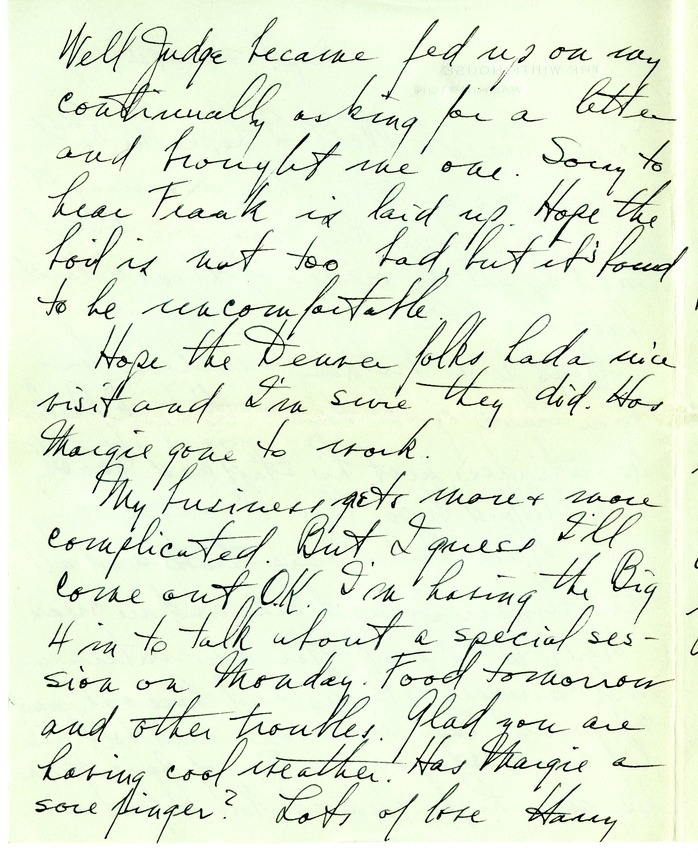 Well Judge became fed up on my
continually asking for a letter
and brought me one. Sorry to
hear Frank is laid up. Hope the
boil is not too bad, but it's bound
to be uncomfortable.
Hope the Denver folks had a nice
visit and I'm sure they did. Has
Margie gone to work.
My business gets more & more
complicated. But I guess I'll
come out O.K. I'm having the Big
4 in to talk about a special ses-
sion on Monday. Food tomorrow
and other troubles. Glad you are
having cool weather. Has Margie a
sore finger? Lots of love Harry